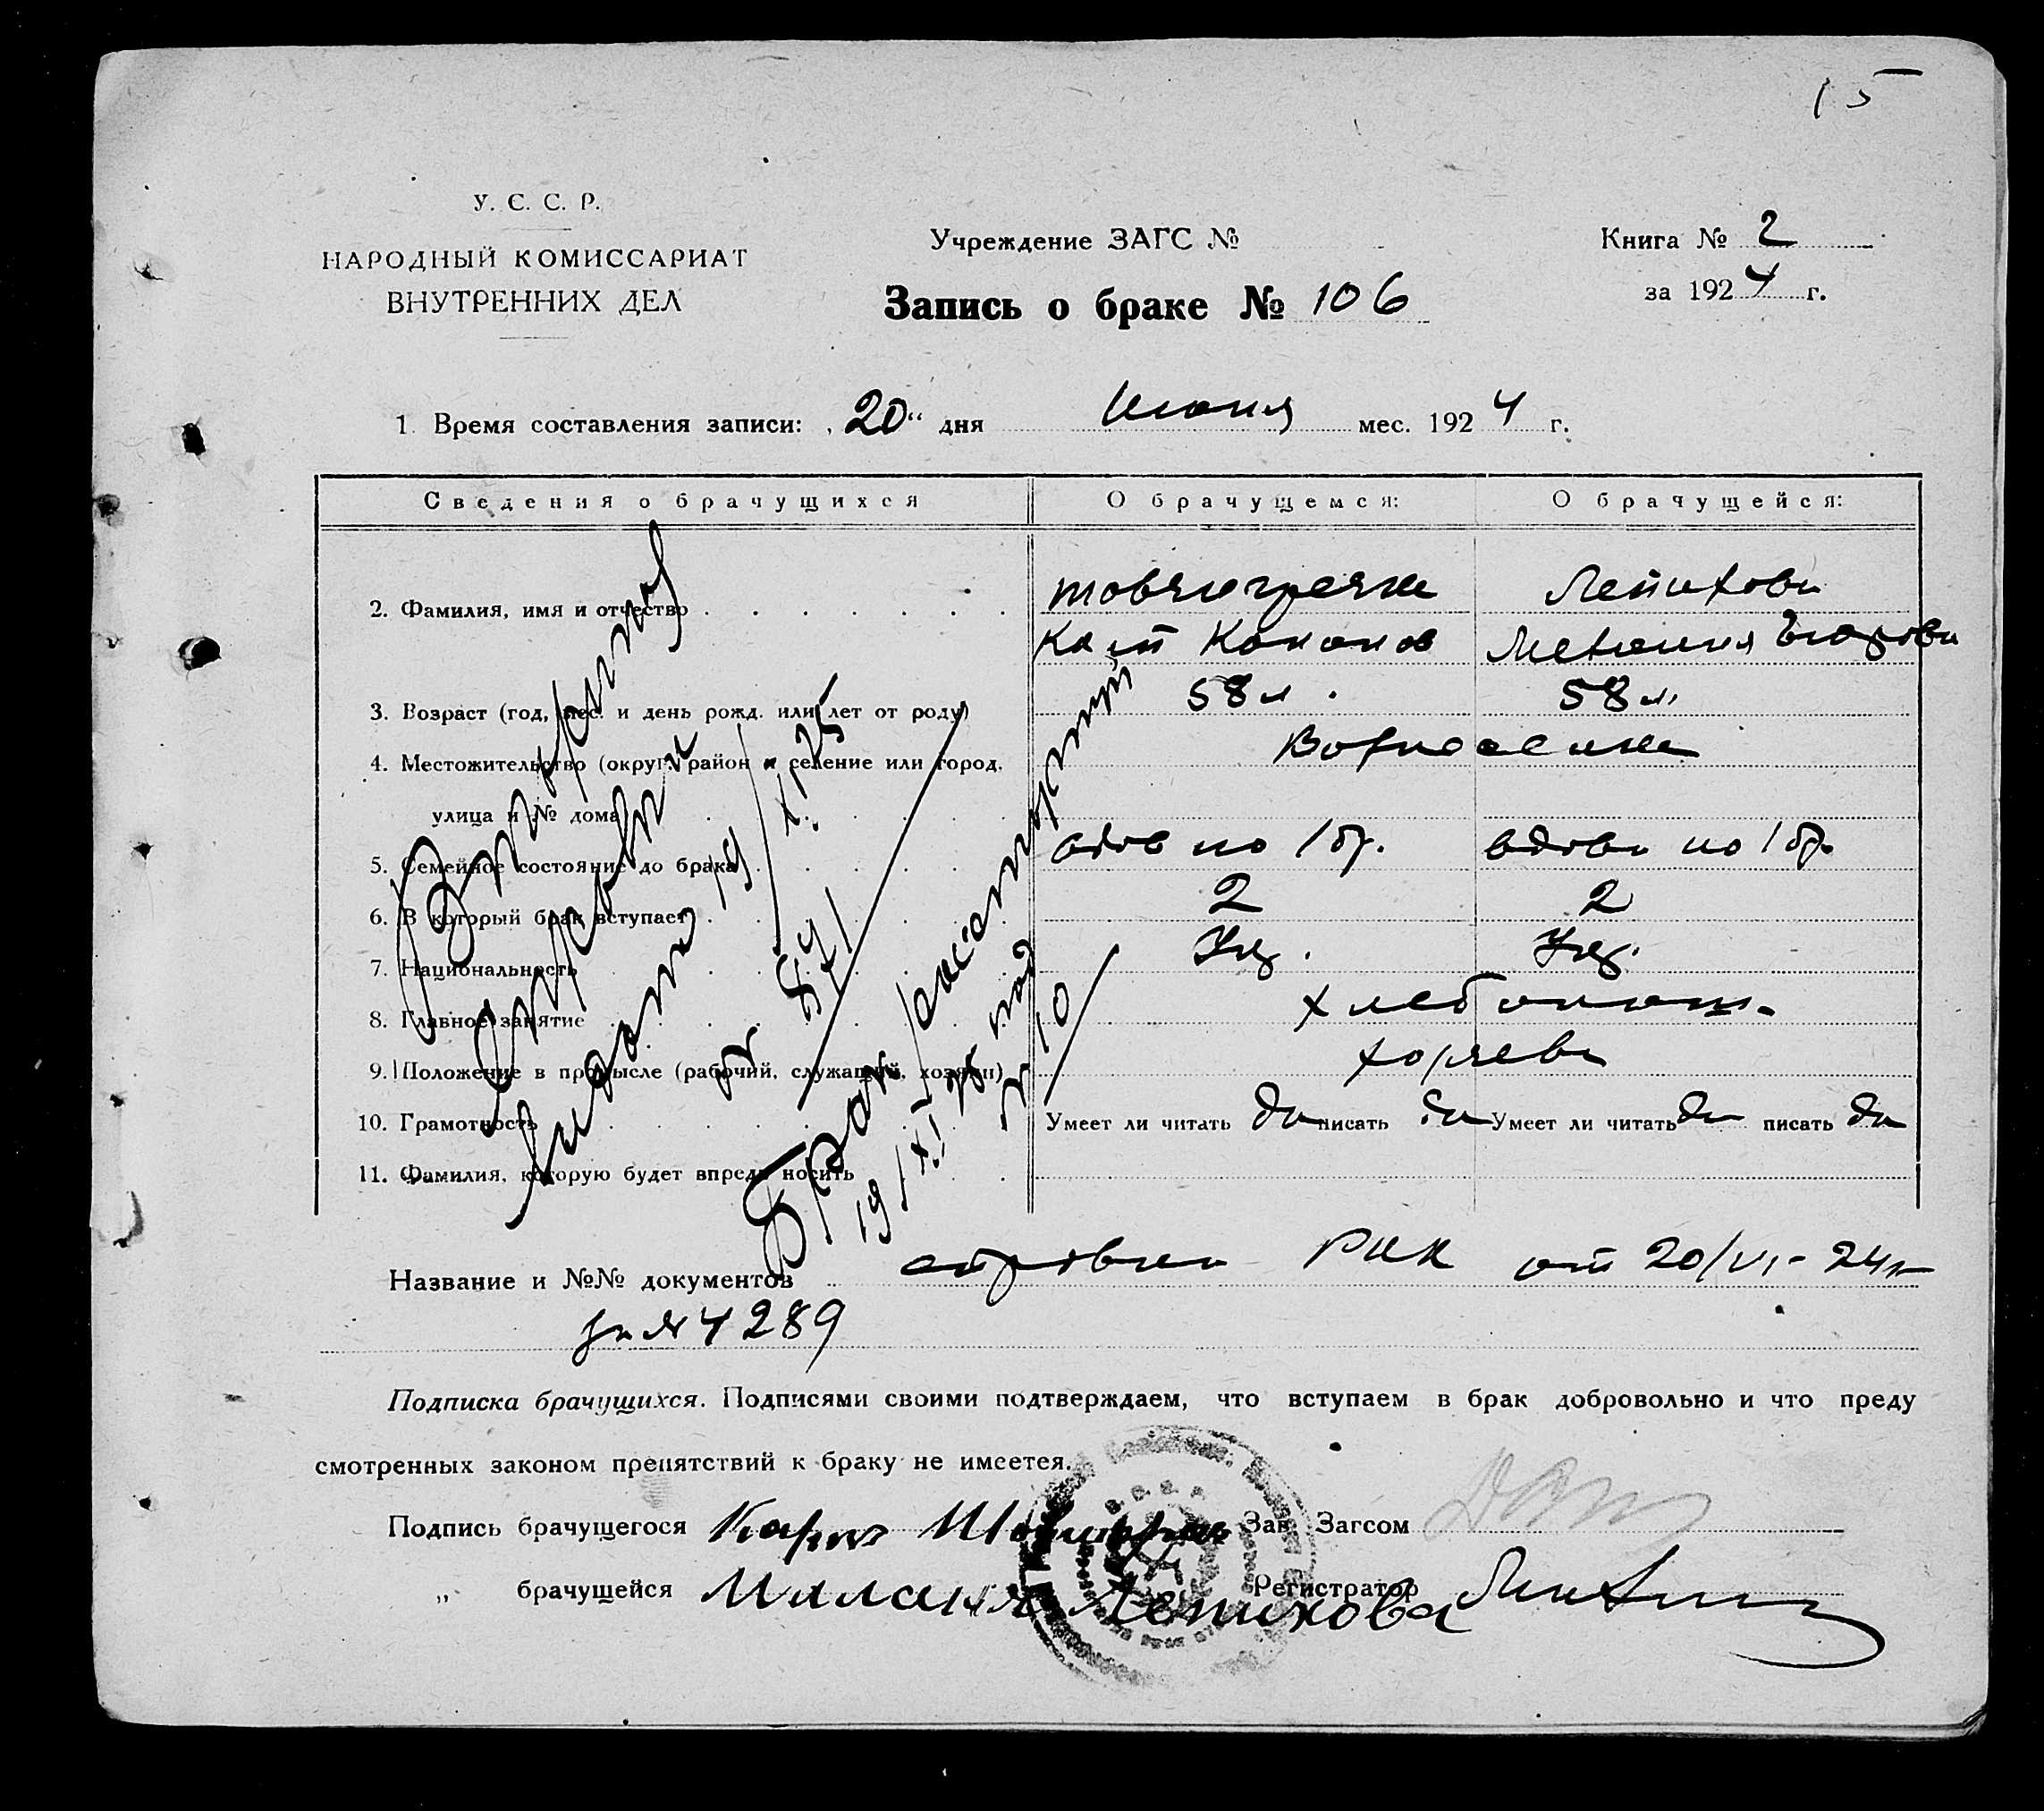 15
У. С. С. Р.
НАРОДНЫЙ КОМИССАРИАТ
ВНУТРЕННИХ ДЕЛ
Учреждение ЗАГС №
Запись о браке № 106
Книга № 2
за 1924 г.
1. Время составления записи: „20“ дня июня мес. 1924 г.
Сведения о брачущихся О брачущемся: О брачущейся:
2. Фамилия, имя и отчество
58 л. 58 л.
3. Возраст (год, мес. и день рожд. или лет от роду)
4. Местожительство (округ, район и селение или город,
улица и № дома
5. Семейное состояние до брака вдов по 1 бр. вдова по 1 бр.
6. В который брак вступает 2 2
7. Национальность
8. Главное занятие хлебопаш.
9. Положение в промысле (рабочий, служащий, хозяин) хозяева
10. Грамотность Умеет ли читать да писать да Умеет ли читать да писать да
11. Фамилия, которую будет впредь носить
Вторично справка
выдана 19/XI 25
№ 871
Брак расторгнут
19/XI 25 под
№ 10
Название и №№ документов справка РИК от 20/VI-24 г
за № 4289
Подписка брачущихся. Подписями своими подтверждаем, что вступаем в брак добровольно и что преду
смотренных законом препятствий к браку не имеется.
Подпись брачущегося Карп Зав. Загсом
„ брачущейся Малания Летихова Регистратор